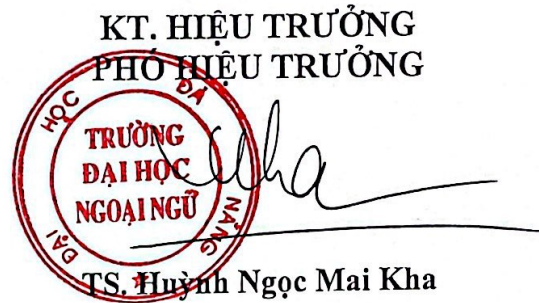 KT. HIỆU TRƯỞNG
PHÓ HIỆU TRƯỞNG
ĐẠI HỌC ĐÀ NẴNG
TRƯỜNG
ĐẠI HỌC
NGOẠI NGỮ
Kha
TS. Huỳnh Ngọc Mai Kha